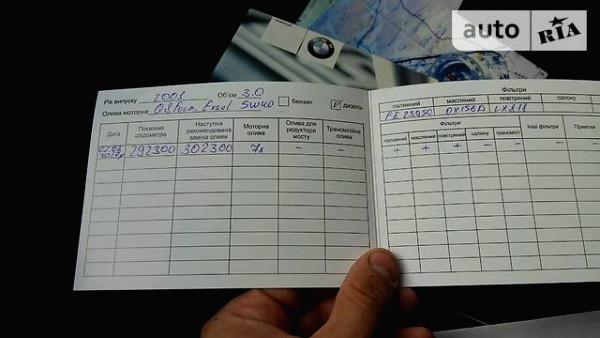 auto RIA
BMW
Рік випуску 2001 Об'єм 3.0
Олива моторна 5W40 бензин дизель
Дата Показник одометра Наступна рекомендована заміна оливи Моторна олива Олива для редуктора мосту Трансмісійна олива
292300 302300 7л – –
Фільтри
паливний масляний повітряний салону
OX156D
Фільтри Інші фільтри Примітки
паливний масляний повітряний салону трансмісії
+ + + – – –